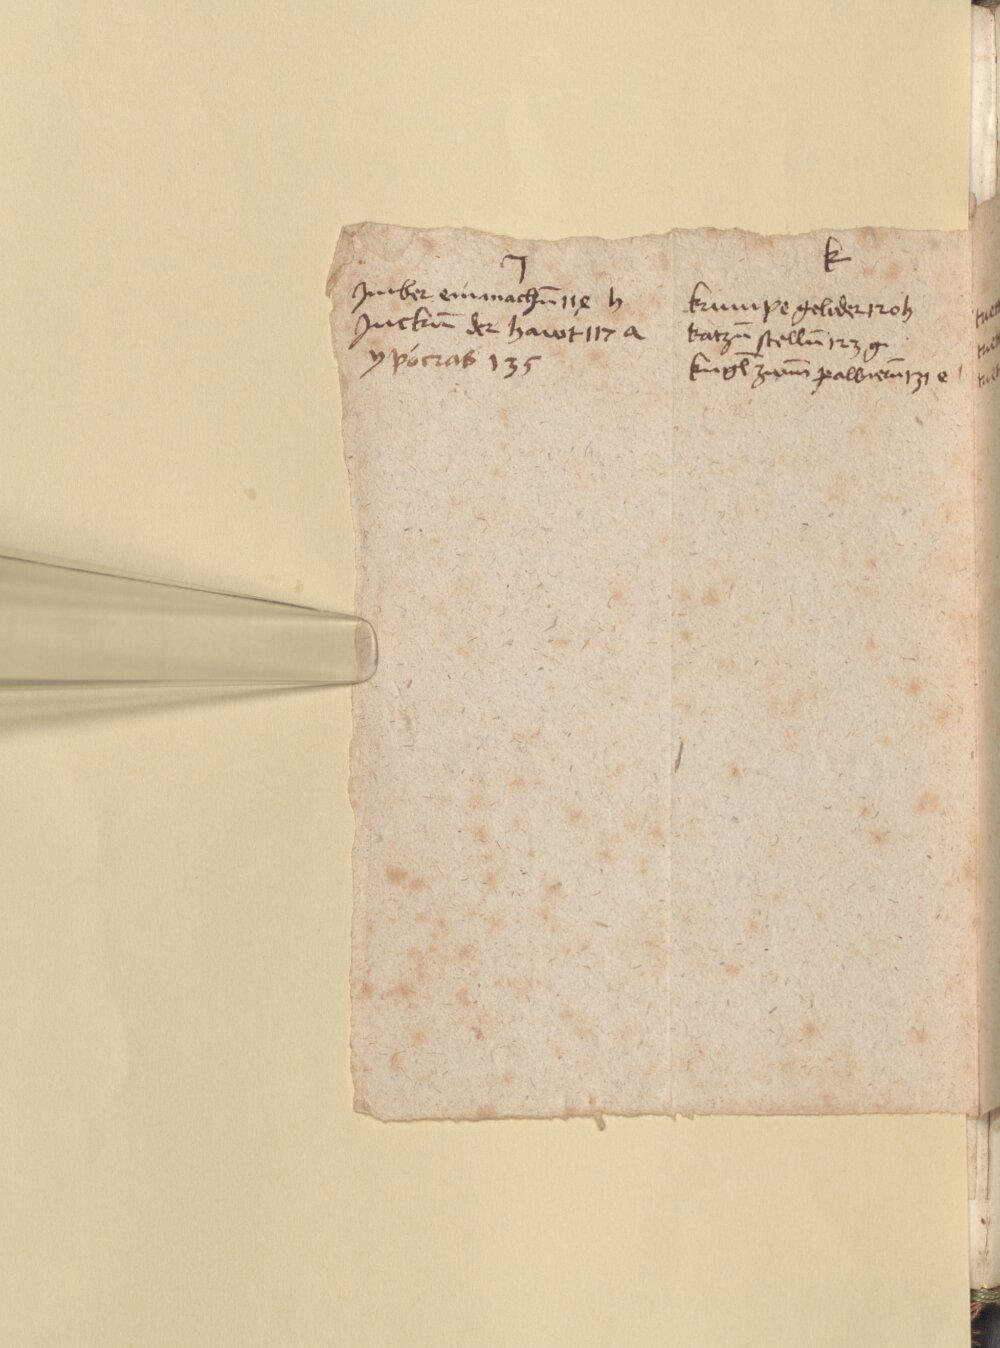 J
Jmber einmachn̄ 11e h
Juckūn der hawt 117 a
ypocras 135
k
krumpe gelider 120 h
katzn̄ stelln̄ 123 g
kugl̄ zwm̄ palbiern̄ 131 e